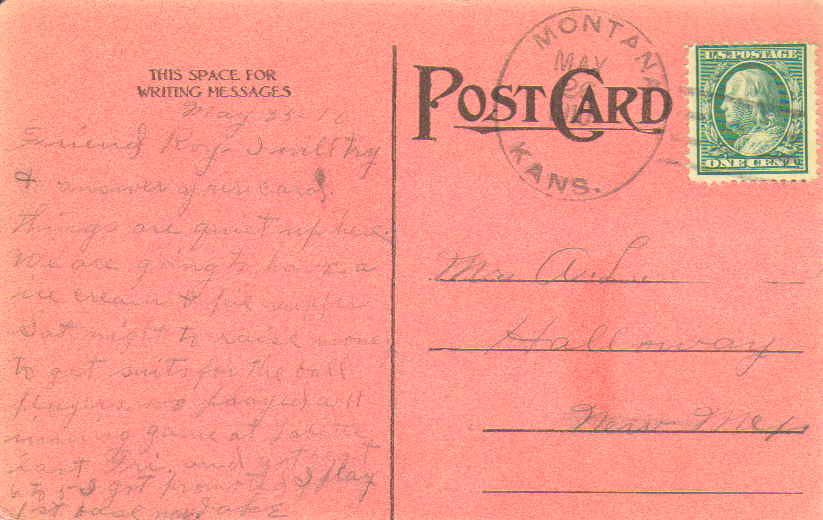 THIS SPACE FOR
WRITING MESSAGES
May 25-10
Friend Roy. I will try
& answer your card.
Things are quiet up here.
We are going to have a
ice cream & pie supper
Sat night to raise money
to get suits for the ball
players. we played a 11
inning game at
last Fri. and got beat
6 to 5 I got promoted I play
1st base now. Jake
POST CARD
MONTANA
MAY
KANS.
U.S. POSTAGE
ONE CENT
Halloway
New Mex